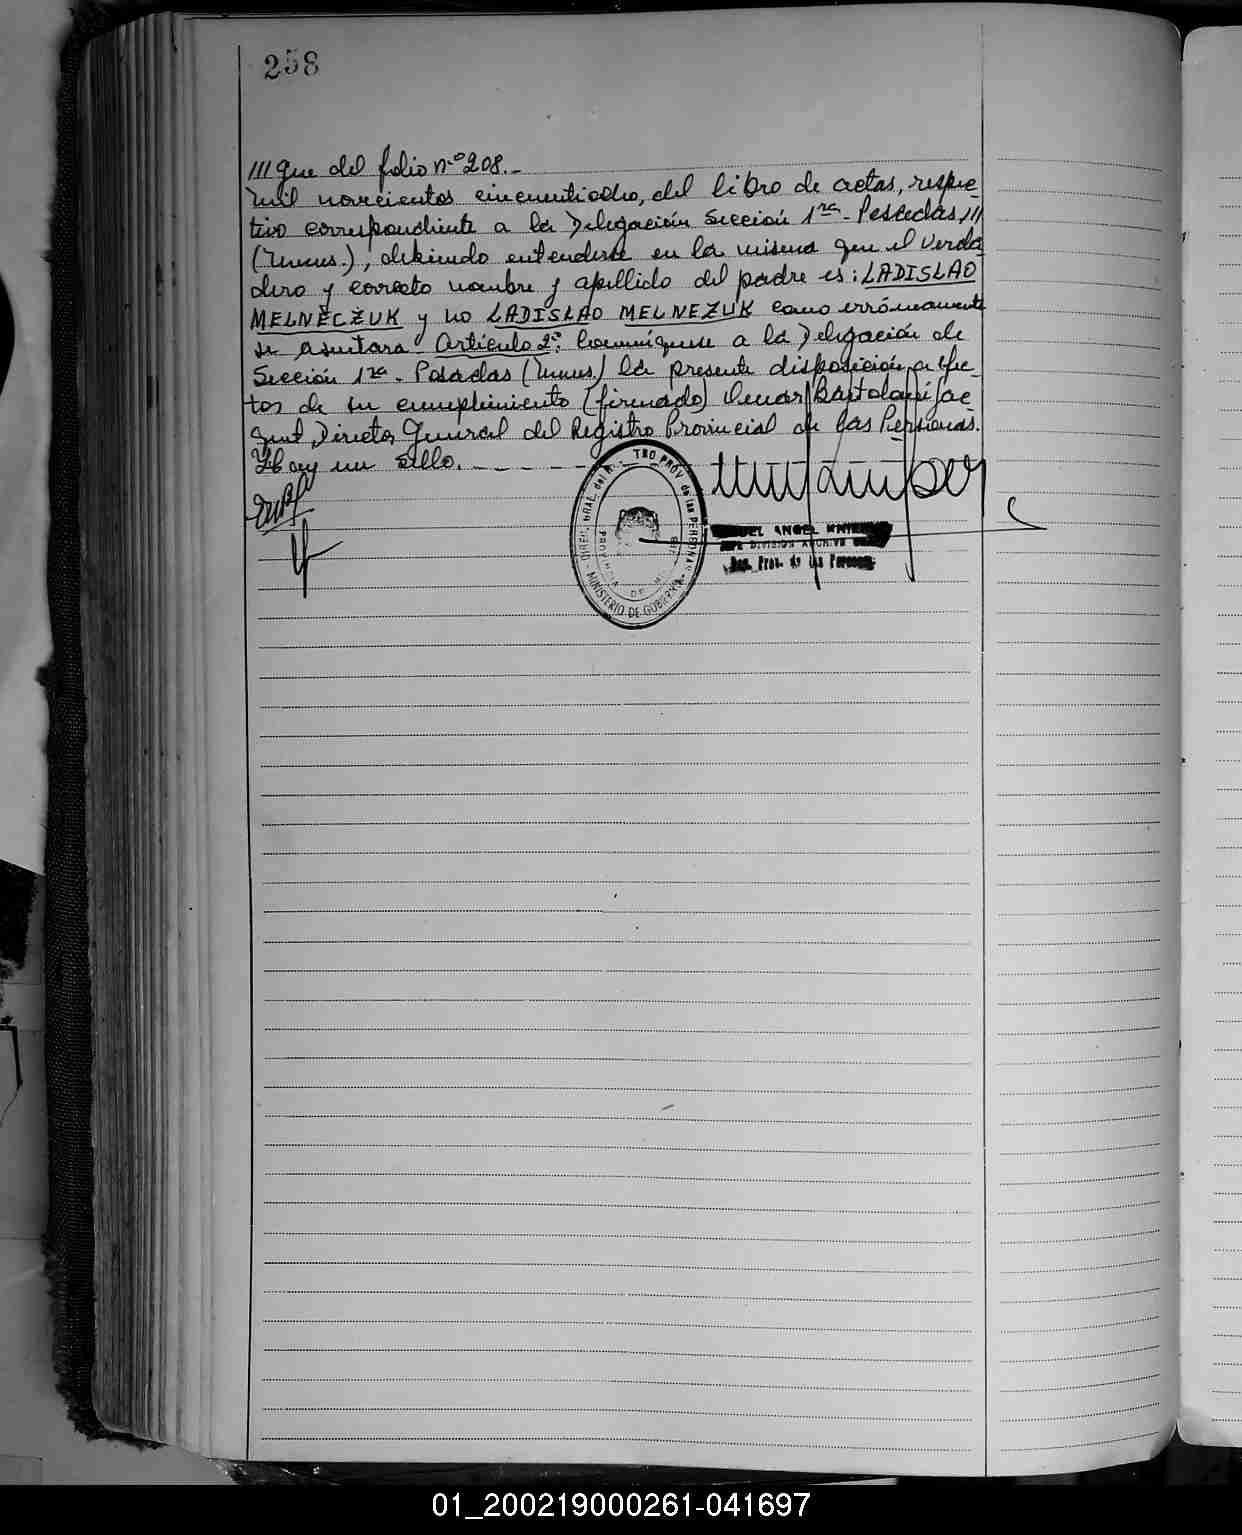 258
/// que del folio nº 208.-
mil novecientos cincuentiocho, del libro de actas, respec-
tivo correspondiente a la Delegación Sección 1ra- Posadas, ///
(Mnes.), debiendo entenderse en la misma que el verda-
dero y correcto nombre y apellido del padre es: LADISLAO
MELNECZUK y no LADISLAO MELNEZUK como erróneamente
se asentara Artículo 2º: Comuníquese a la Delegación de
Sección 1ra- Posadas (Mnes.) la presente disposición a efec-
tos de su cumplimiento (firmado) Omar Bartolomé Sar-
gent Director General del Registro Provincial de las Personas.
Hay un sello.
DIREC. GRAL. del R TRO PROV. de las PERSONAS
PROVINCIA DE MIS
MINISTERIO DE GOBIERNO
ANGEL
DIVISION ARCHIVO
Prov. de las Personas
01_200219000261-041697